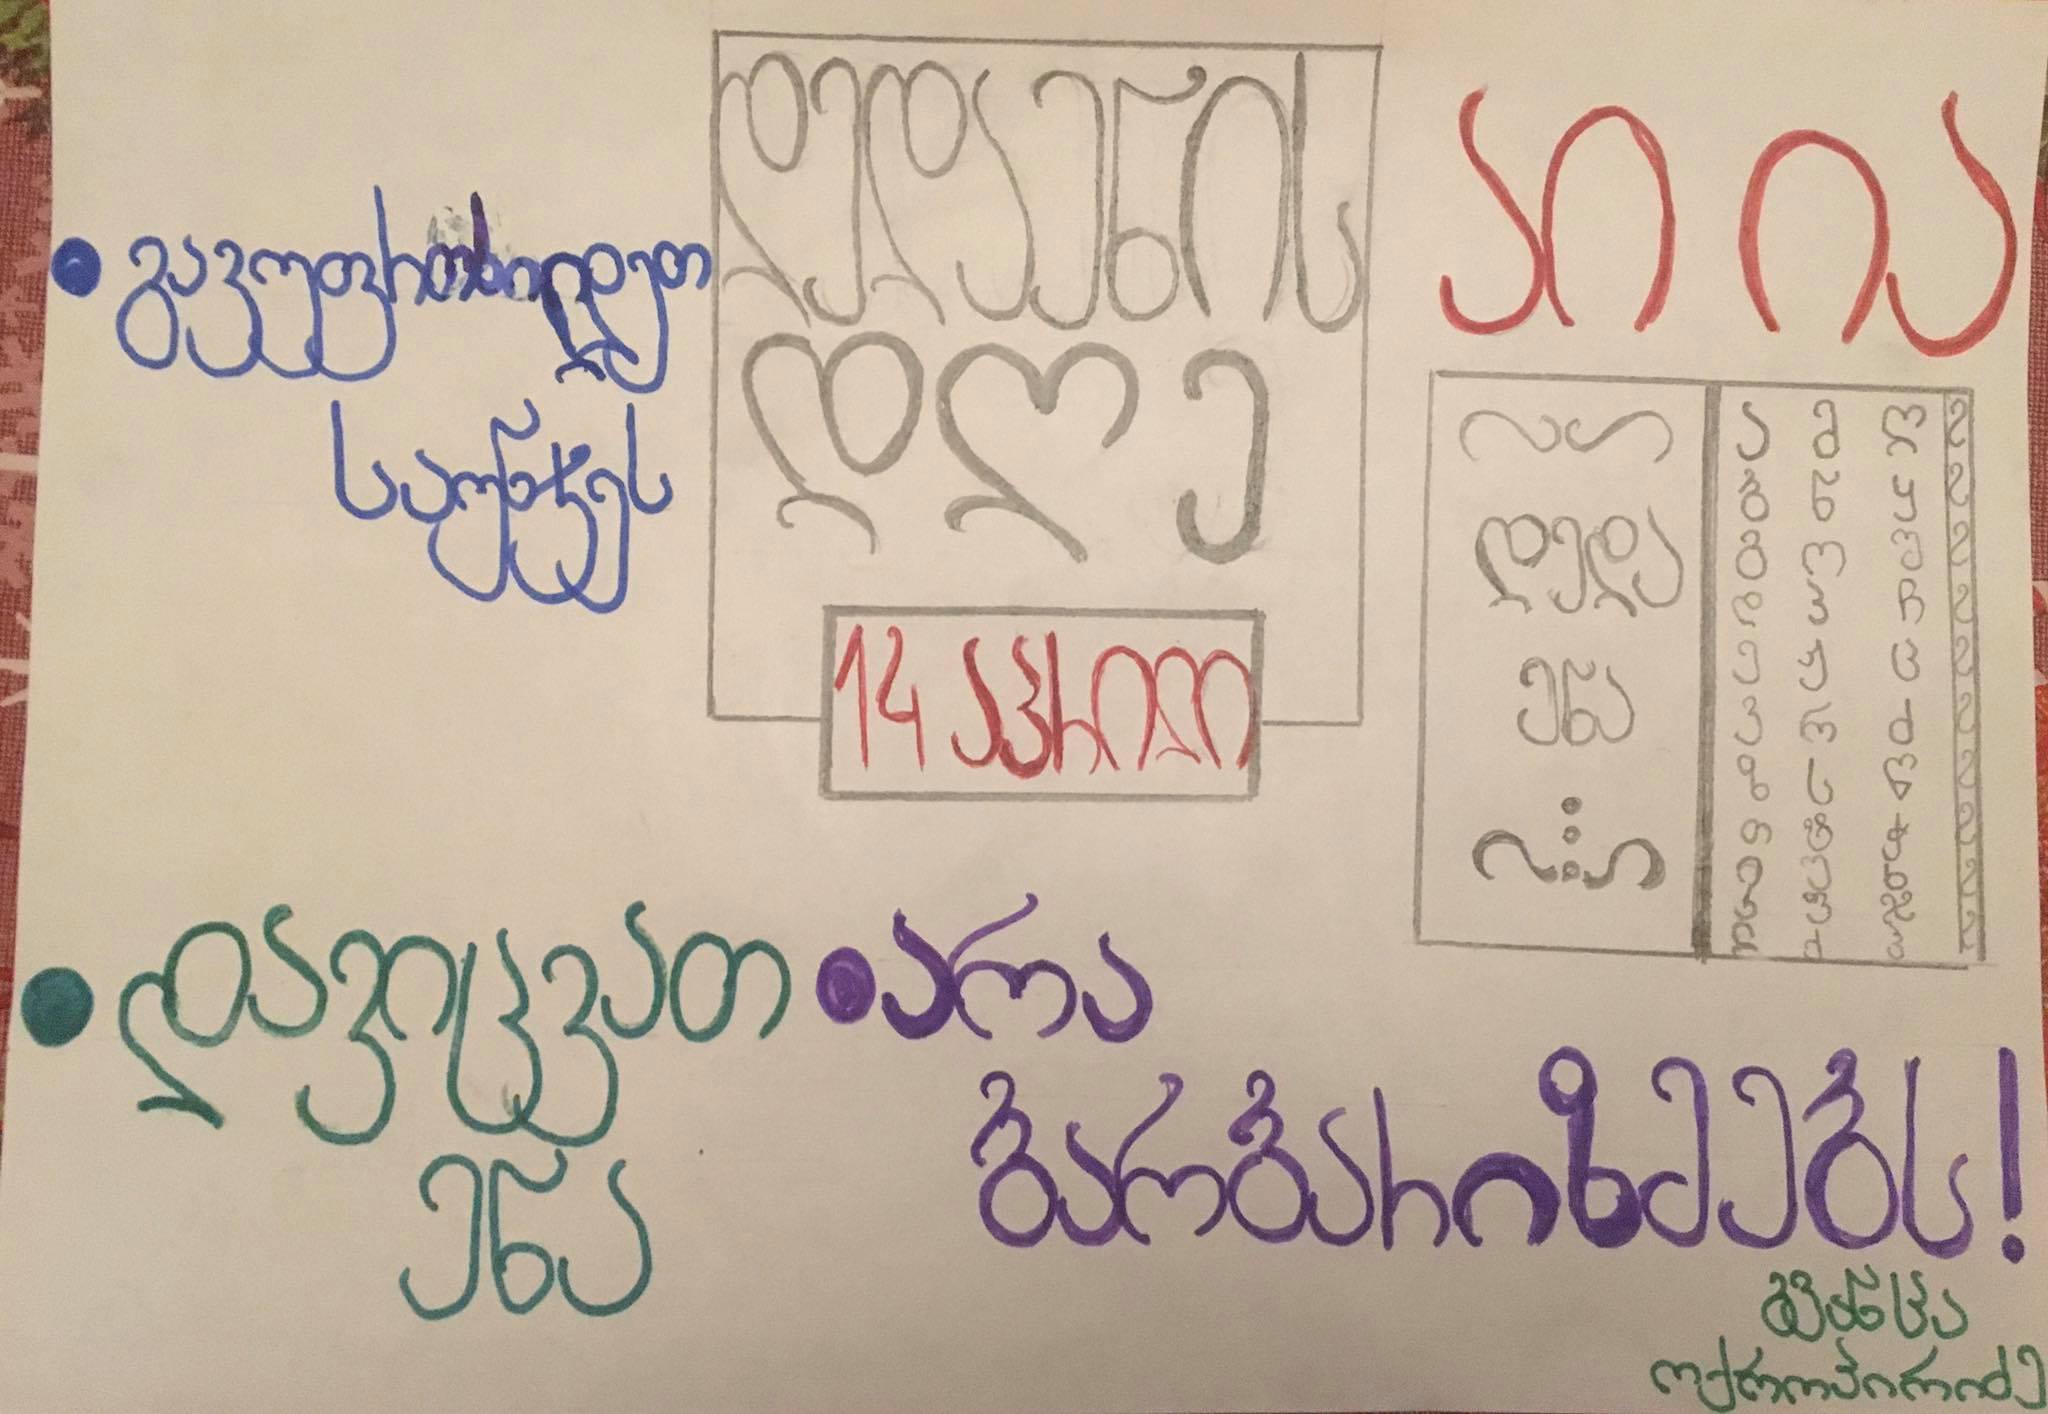 დედაენის
დღე
14 აპრილი
აი ია
• გავუფრთხილდეთ
საუნჯეს
დედა
ენა
• დავიცვათ
ენა
• არა
ბარბარიზმებს!
გვანცა
ოქროპირიძე